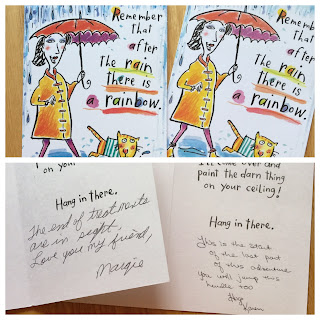 Remember
that
after
the rain
there is
a rainbow.
Remember
that
after
the rain
there is
a rainbow.
on you.
Hang in there.
The end of treatments
are in sight.
Love you my friend,
Margie
I'll come over and
paint the darn thing
on your ceiling!
Hang in there.
This is the start
of the last part
of this adventure
you will jump this
hurdle too
Hugs
Karen